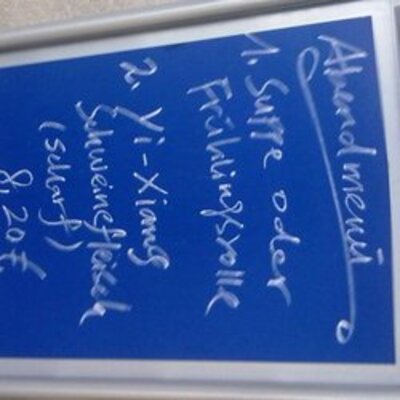 Abendmenü
1. Suppe oder
Frühlingsrolle
2. Yi-Xiang
Schweinefleisch
(scharf)
8,20€